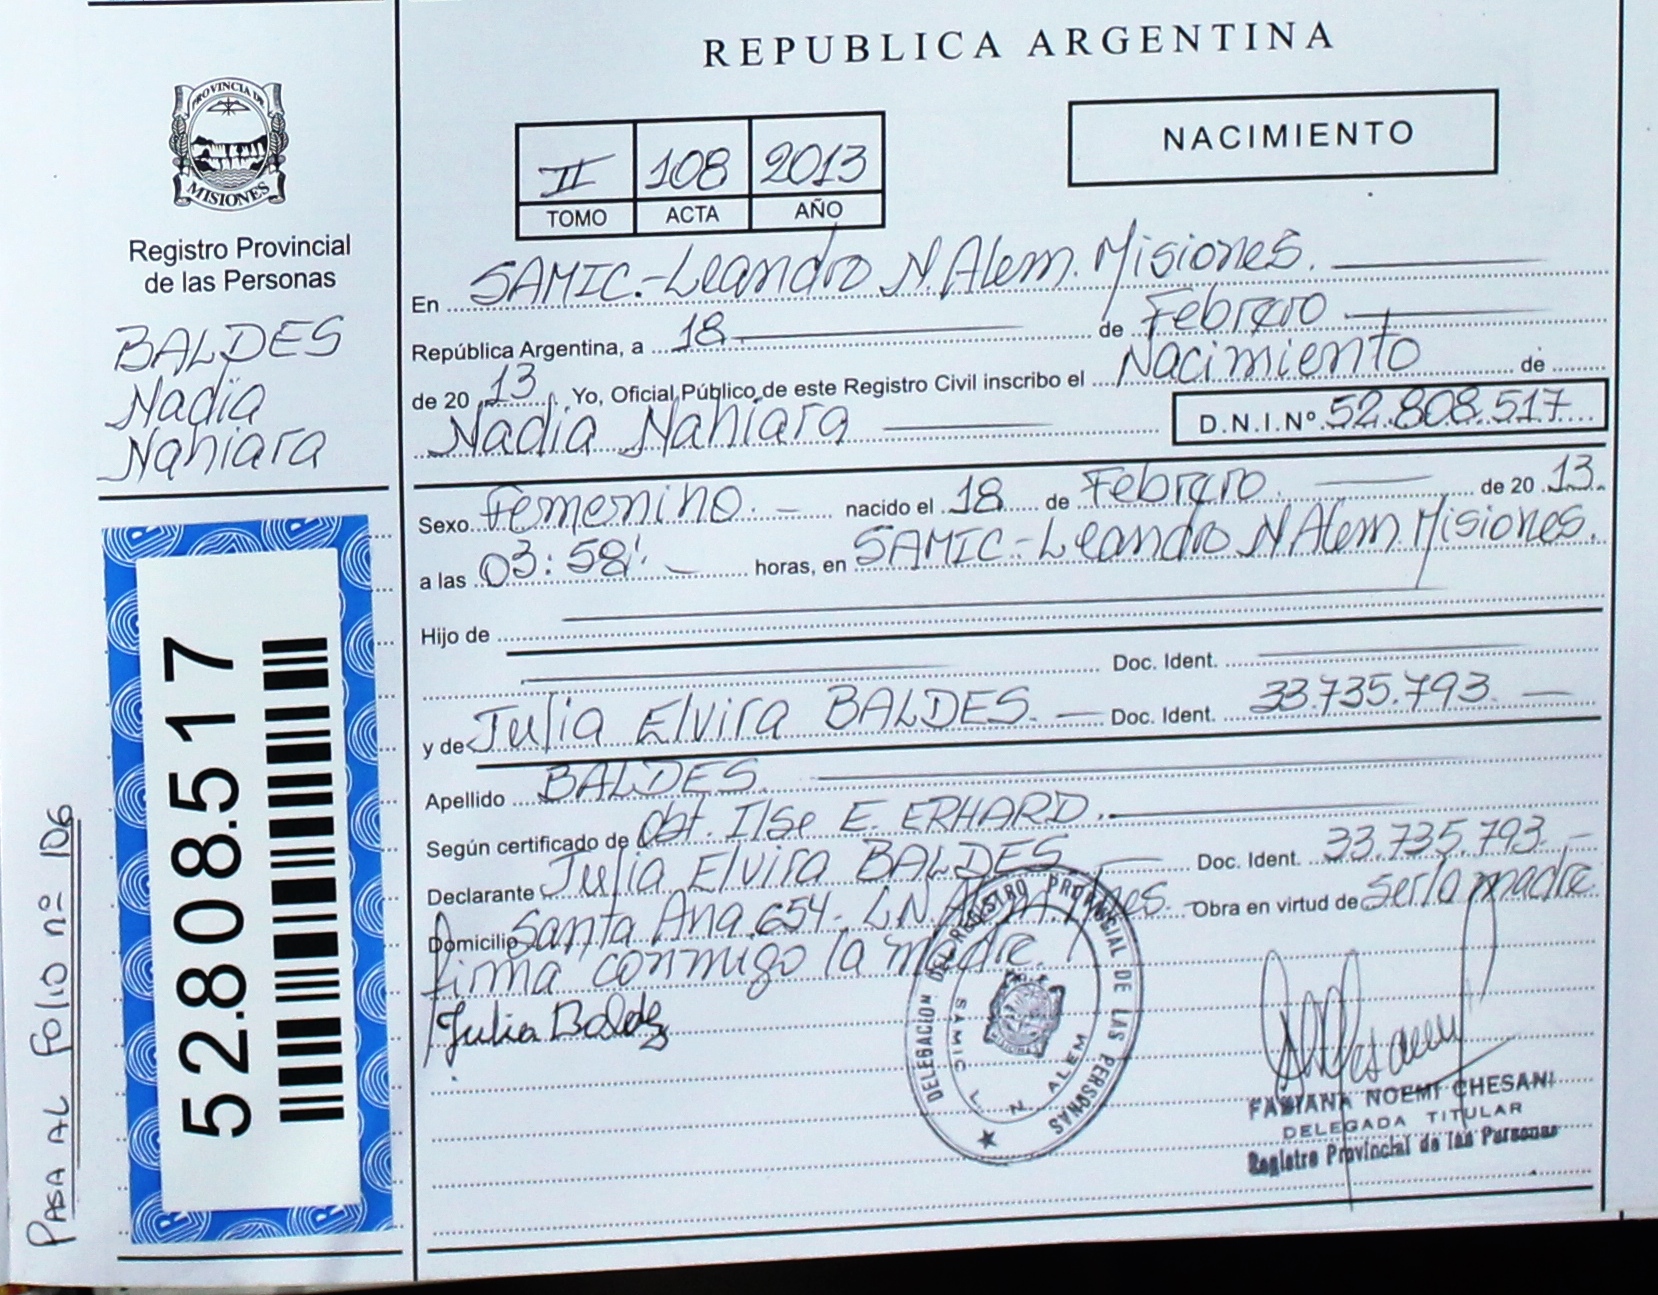 REPUBLICA ARGENTINA
PROVINCIA DE
MISIONES
Registro Provincial
de las Personas
BALDES
Nadia
Nahiara
52.808.517
PASA AL FOLIO nº 106
II 108 2013
TOMO ACTA AÑO
NACIMIENTO
En SAMIC.-Leandro N.Alem.Misiones.
República Argentina, a 18 de Febrero
de 2013. Yo, Oficial Público de este Registro Civil inscribo el Nacimiento de
Nadia Nahiara D.N.I.Nº 52.808.517
Sexo Femenino. nacido el 18 de Febrero. de 2013.
a las 03:58' horas, en SAMIC.-Leandro N Alem.Misiones.
Hijo de
Doc. Ident.
y de Julia Elvira BALDES. Doc. Ident. 33.735.793.
Apellido BALDES.
Según certificado de Obst. Ilse E. ERHARD.
Declarante Julia Elvira BALDES Doc. Ident. 33.735.793.
Domicilio Santa Ana 654. L.N.Alem.Mnes. Obra en virtud de ser la madre.
firma conmigo la madre.
Julia Baldez
DELEGACION DEL REGISTRO PROVINCIAL DE LAS PERSONAS
SAMIC L. N. ALEM
FABIANA NOEMI CHESANI
DELEGADA TITULAR
Registro Provincial de las Personas